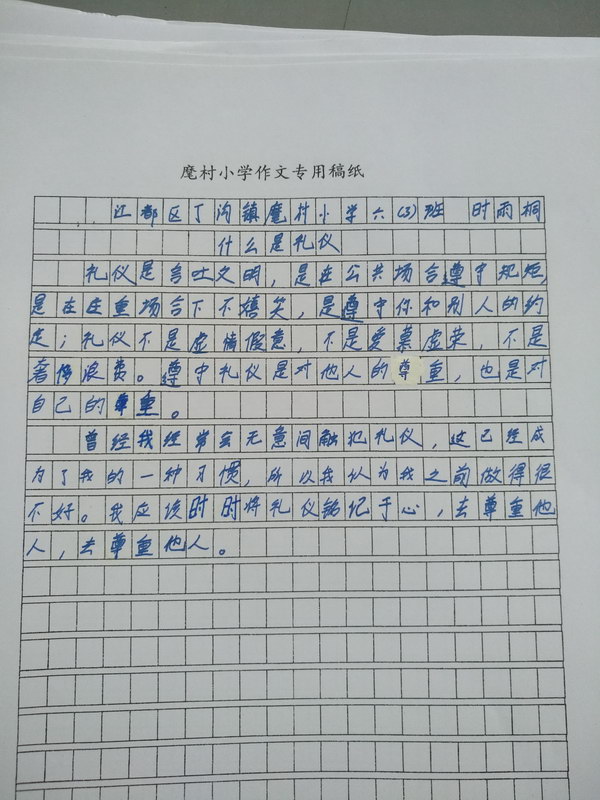 麾村小学作文专用稿纸
江都区丁沟镇麾村小学六(3)班 时雨桐
什么是礼仪
礼仪是言吐文明,是在公共场合遵守规矩,
是在庄重场合下不嬉笑,是遵守你和别人的约
定;礼仪不是虚情假意,不是爱慕虚荣,不是
奢侈浪费。遵守礼仪是对他人的尊重,也是对
自己的尊重。
曾经我经常在无意间触犯礼仪,这已经成
为了我的一种习惯,所以我认为我之前做得很
不好。我应该时时将礼仪铭记于心,去尊重他
人,去尊重他人。